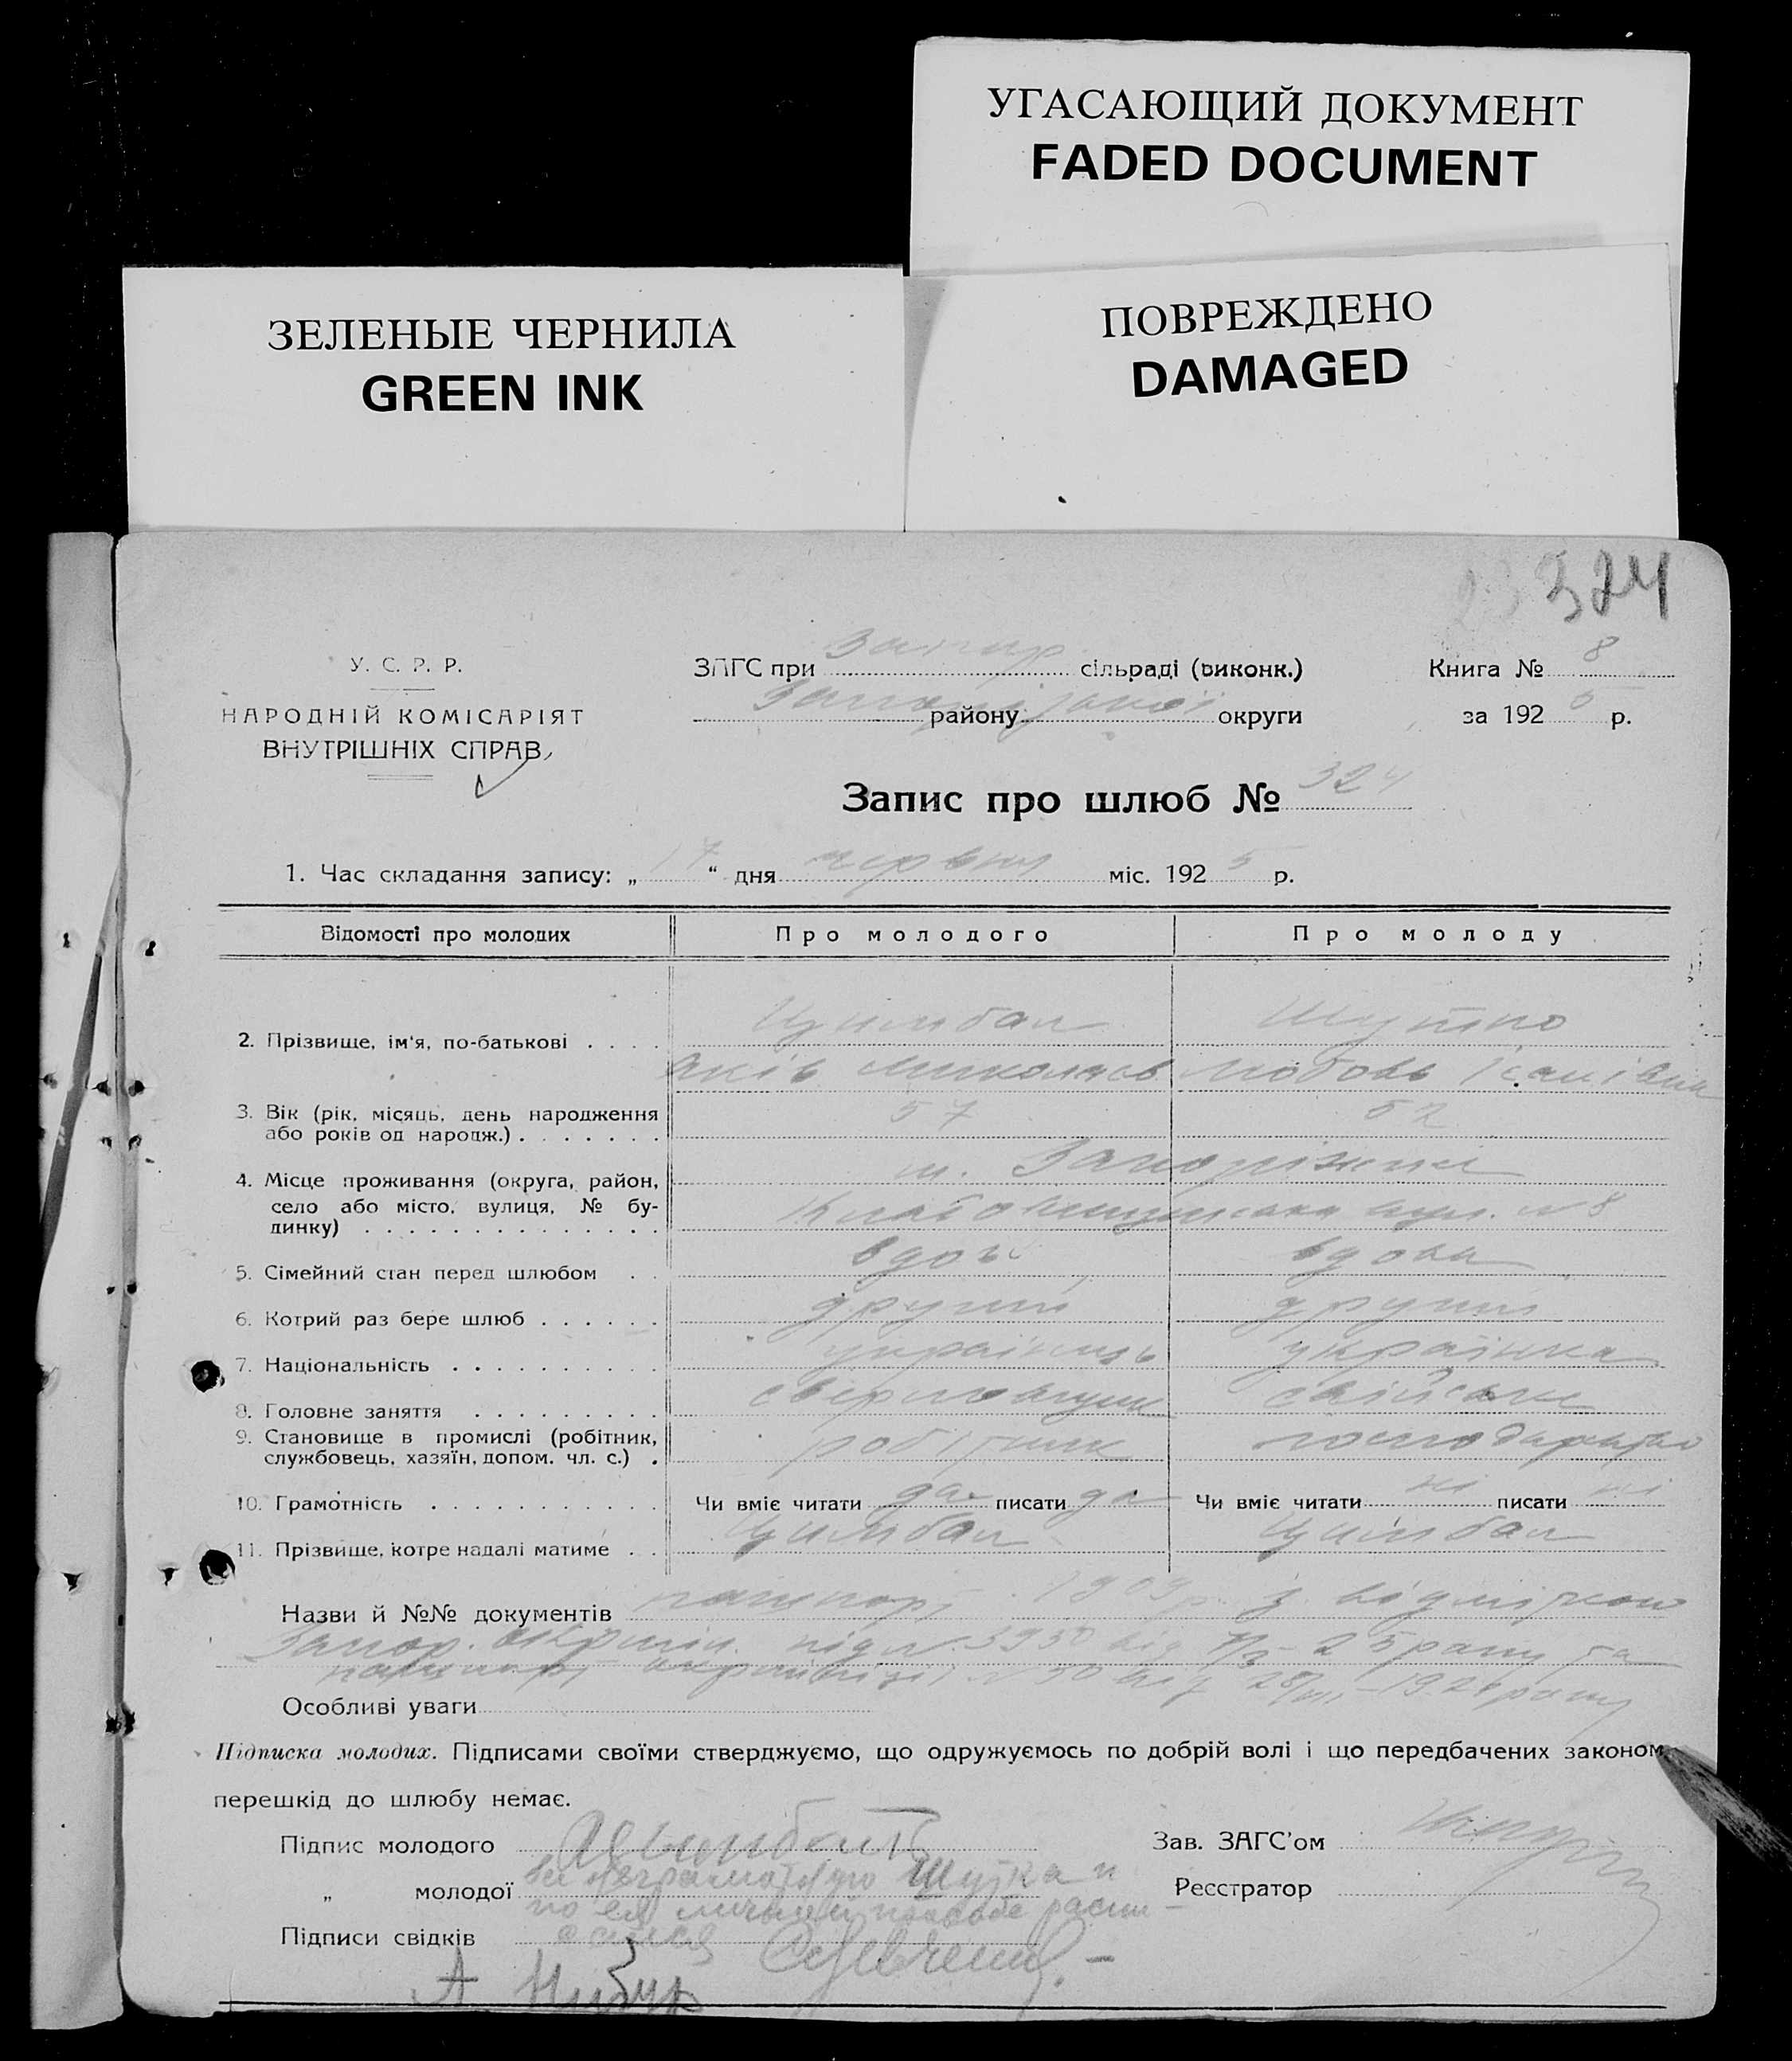 УГАСАЮЩИЙ ДОКУМЕНТ
FADED DOCUMENT
ЗЕЛЕНЫЕ ЧЕРНИЛА
GREEN INK
ПОВРЕЖДЕНО
DAMAGED
324
У. С. Р. Р.
НАРОДНІЙ КОМІСАРІЯТ
ВНУТРІШНІХ СПРАВ
ЗАГС при Запор. сільраді (виконк.)
Книга № 8
району Запорізької округи
за 1925 р.
Запис про шлюб № 324
1. Час складання запису: „ 17 “ дня червня міс. 1925 р.
Відомості про молодих Про молодого Про молоду
Цимбал Шутко
2. Прізвище, ім'я, по-батькові
Яків Миколаєв Любовь
3. Вік (рік, місяць, день народження 57 52
або років од народж.)
4. Місце проживання (округа, район, м. Запоріжжя
село або місто, вулиця, № бу- вул. № 8
динку)
5. Сімейний стан перед шлюбом вдов. вдова
6. Котрий раз бере шлюб другий другий
7. Національність українець українка
8. Головне заняття свійське
9. Становище в промислі (робітник, робітник господарство
службовець, хазяїн, допом. чл. с.)
10. Грамотність Чи вміє читати да писати да Чи вміє читати ні писати ні
11. Прізвище, котре надалі матиме Цимбал Цимбал
Назви й №№ документів паспорт 1909 р. з відміткою
Запор. під № 3950 від 25 року та
№ 50 від 28/VII
Особливі уваги
Підписка молодих. Підписами своїми стверджуємо, що одружуємось по добрій волі і що передбачених законом
перешкід до шлюбу немає.
Підпис молодого
Зав. ЗАГС'ом
за неграмотную Шутка и
„ молодої
Реєстратор
по ея личной просьбе распи-
Підписи свідків
сался